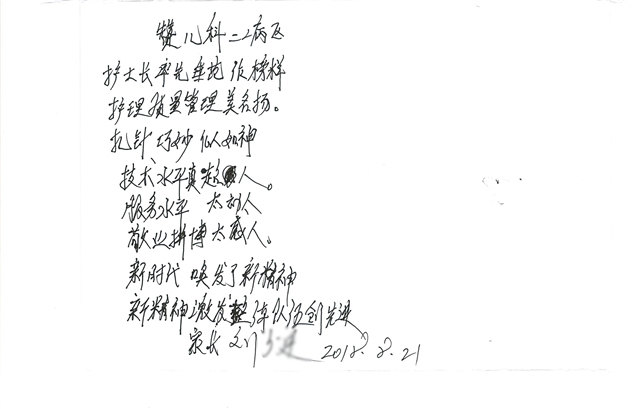 赞儿科二病区
护士长率先垂范作榜样
护理质量管理美名扬。
扎针巧妙似如神
技术水平真超人。
服务水平 太动人
敬业拼博太感人。
新时代 唤发了新精神
新精神激发整体队伍创先进
家长 刘 2018.8.21